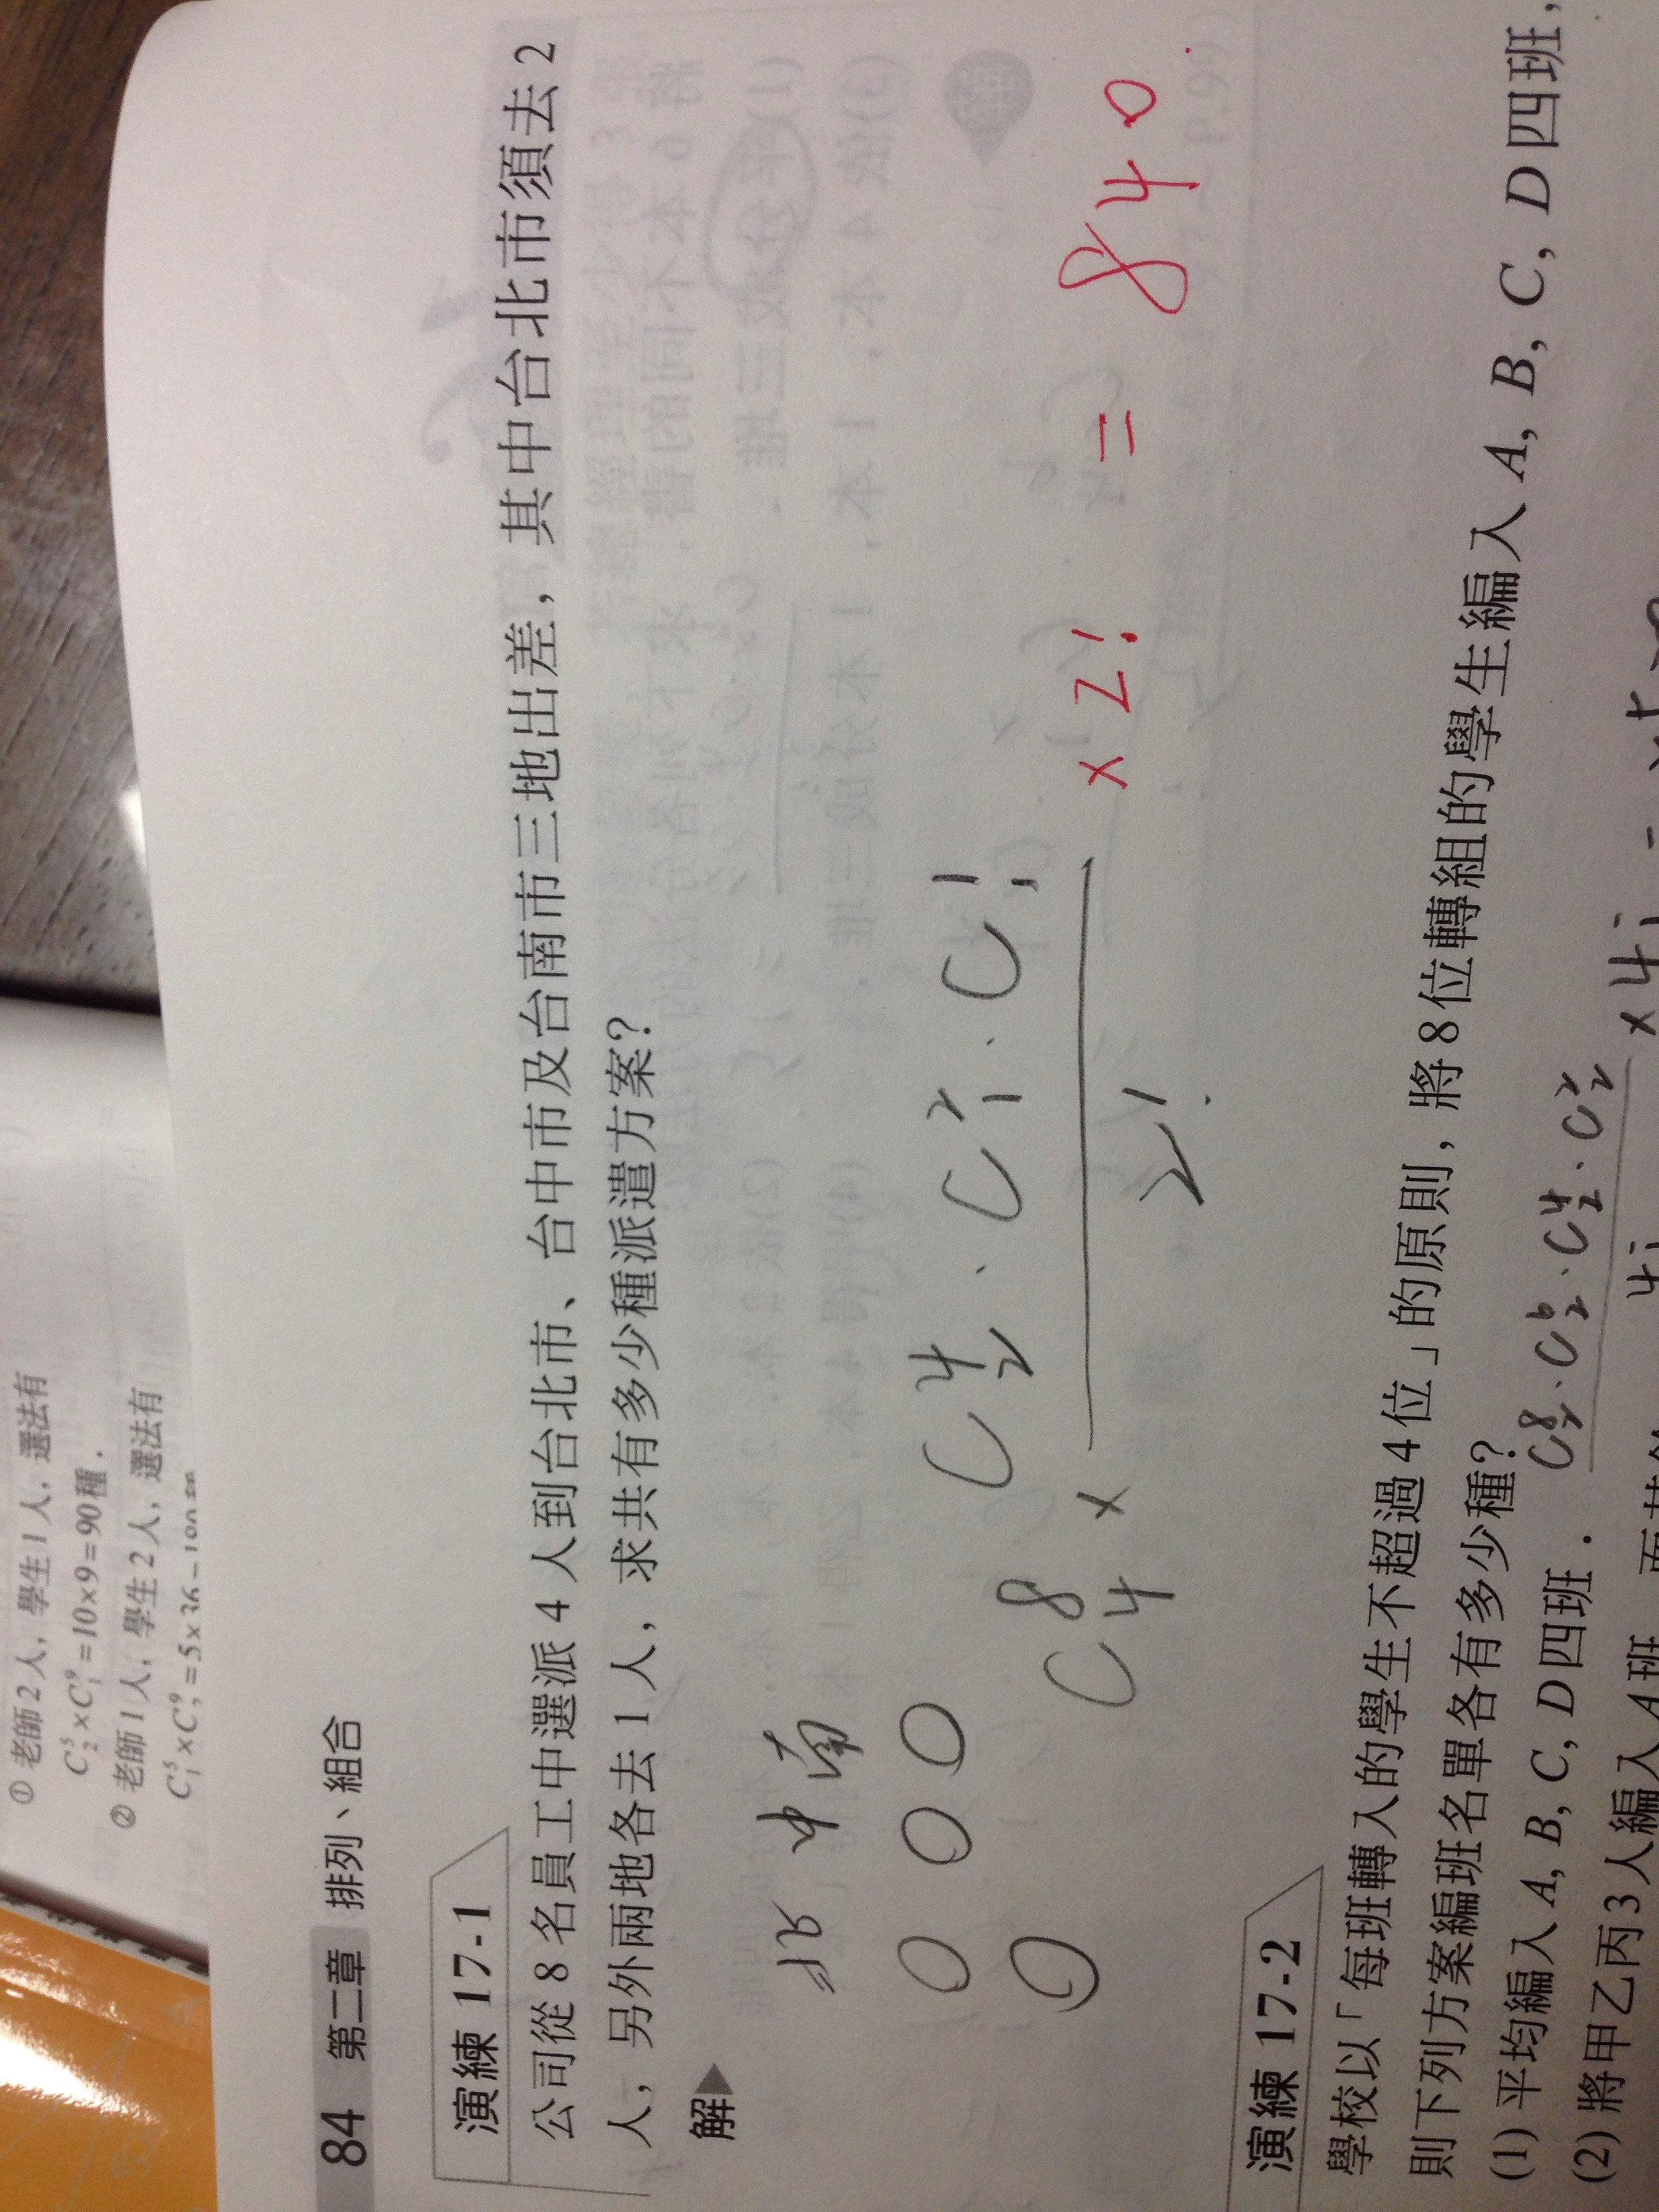 ① 老師2人, 學生1人, 選法有
C⁵₂×C⁹₁=10×9=90種.
② 老師1人, 學生2人, 選法有
84 第二章 排列、組合
演練 17-1
公司從 8 名員工中選派 4 人到台北市、台中市及台南市三地出差, 其中台北市須去 2
人, 另外兩地各去 1 人, 求共有多少種派遣方案?
解▶
北 中 南
O O O
O
C⁸₄ × C⁴₂ · C²₁ · C¹₁ / 2! × 2! = 840
演練 17-2
學校以「每班轉入的學生不超過 4 位」的原則, 將 8 位轉組的學生編入 A, B, C, D 四班,
則下列方案編班名單各有多少種?
(1) 平均編入 A, B, C, D 四班.
C⁸₂·C⁶₂·C⁴₂·C²₂ / 4! × 4!
(2) 將甲乙丙 3 人編入 A 班